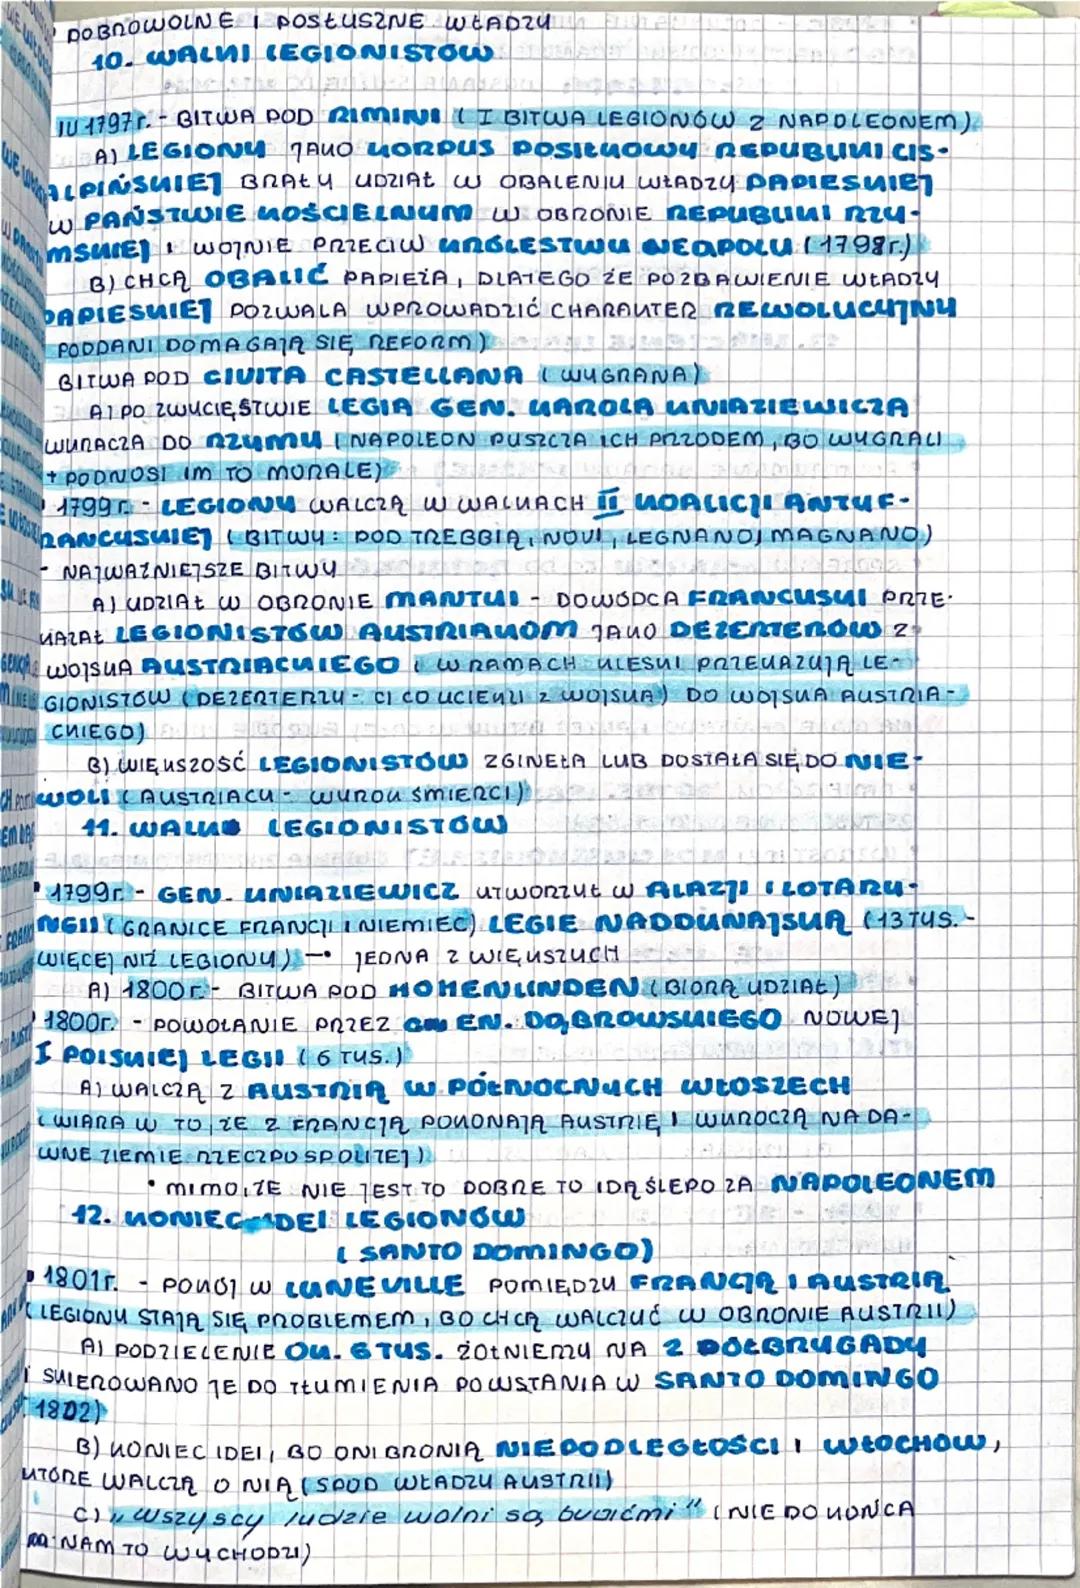 DOBROWOLNE I POSŁUSZNE WŁADZY
10. WALKI LEGIONISTÓW
IV 1797r. - BITWA POD RIMINI (I BITWA LEGIONÓW Z NAPOLEONEM)
A) LEGIONY JAKO KORPUS POSIŁKOWY REPUBLIKI CIS-
ALPIŃSKIEJ BRAŁY UDZIAŁ W OBALENIU WŁADZY PAPIESKIEJ
W PAŃSTWIE KOŚCIELNYM W OBRONIE REPUBLIKI RZY-
MSKIEJ I WOJNIE PRZECIW KRÓLESTWU NEAPOLU (1798r.)
B) CHCĄ OBALIĆ PAPIEŻA, DLATEGO ŻE POZBAWIENIE WŁADZY
PAPIESKIEJ POZWALA WPROWADZIĆ CHARAKTER REWOLUCYJNY
PODDANI DOMAGAJĄ SIĘ REFORM)
BITWA POD CIVITA CASTELLANA (WYGRANA)
A) PO ZWYCIĘSTWIE LEGIA GEN. KAROLA KNIAZIEWICZA
WKRACZA DO RZYMU (NAPOLEON PUSZCZA ICH PRZODEM, BO WYGRALI
+ PODNOSI IM TO MORALE)
1799r. - LEGIONY WALCZĄ W WALKACH II KOALICJI ANTYF-
RANCUSKIEJ (BITWY: POD TREBBIĄ, NOVI, LEGNANO, MAGNANO)
- NAJWAŻNIEJSZE BITWY
A) UDZIAŁ W OBRONIE MANTUI - DOWÓDCA FRANCUSKI PRZE-
KAZAŁ LEGIONISTÓW AUSTRIAKOM JAKO DEZERTERÓW Z
WOJSKA AUSTRIACKIEGO (W RAMACH KLĘSKI PRZEKAZUJĄ LE-
GIONISTÓW (DEZERTERZY - CI CO UCIEKLI Z WOJSKA) DO WOJSKA AUSTRIA-
CKIEGO)
B) WIĘKSZOŚĆ LEGIONISTÓW ZGINĘŁA LUB DOSTAŁA SIĘ DO NIE-
WOLI (AUSTRIACY - WYROK ŚMIERCI)
11. WALKI LEGIONISTÓW
• 1799r. - GEN. KNIAZIEWICZ UTWORZYŁ W ALAZJI I LOTARY-
NGII (GRANICE FRANCJI I NIEMIEC) LEGIE NADDUNAJSKĄ (13 TYS. -
WIĘCEJ NIŻ LEGIONY) → JEDNA Z WIĘKSZYCH
A) 1800r. - BITWA POD HOHENLINDEN (BIORĄ UDZIAŁ)
• 1800r. - POWOŁANIE PRZEZ GEN. DĄBROWSKIEGO NOWEJ
I POLSKIEJ LEGII (6 TYS.)
A) WALCZĄ Z AUSTRIĄ W PÓŁNOCNYCH WŁOSZECH
(WIARA W TO, ŻE Z FRANCJĄ POKONAJĄ AUSTRIĘ I WKROCZĄ NA DA-
WNE ZIEMIE RZECZPOSPOLITEJ)
• MIMO, ŻE NIE JEST TO DOBRE TO IDĄ ŚLEPO ZA NAPOLEONEM
12. KONIEC IDEI LEGIONÓW
(SANTO DOMINGO)
• 1801r. - POKÓJ W LUNEVILLE POMIĘDZY FRANCJĄ I AUSTRIĄ
(LEGIONY STAJĄ SIĘ PROBLEMEM, BO CHCĄ WALCZYĆ W OBRONIE AUSTRII)
A) PODZIELENIE OK. 6 TYS. ŻOŁNIERZY NA 2 PÓŁBRYGADY
I SKIEROWANO JE DO TŁUMIENIA POWSTANIA W SANTO DOMINGO
1802)
B) KONIEC IDEI, BO ONI BRONIĄ NIEPODLEGŁOŚCI I WŁOCHÓW,
KTÓRE WALCZĄ O NIĄ (SPOD WŁADZY AUSTRII)
C) „Wszyscy ludzie wolni są braćmi" (NIE DO KOŃCA
NAM TO WYCHODZI)